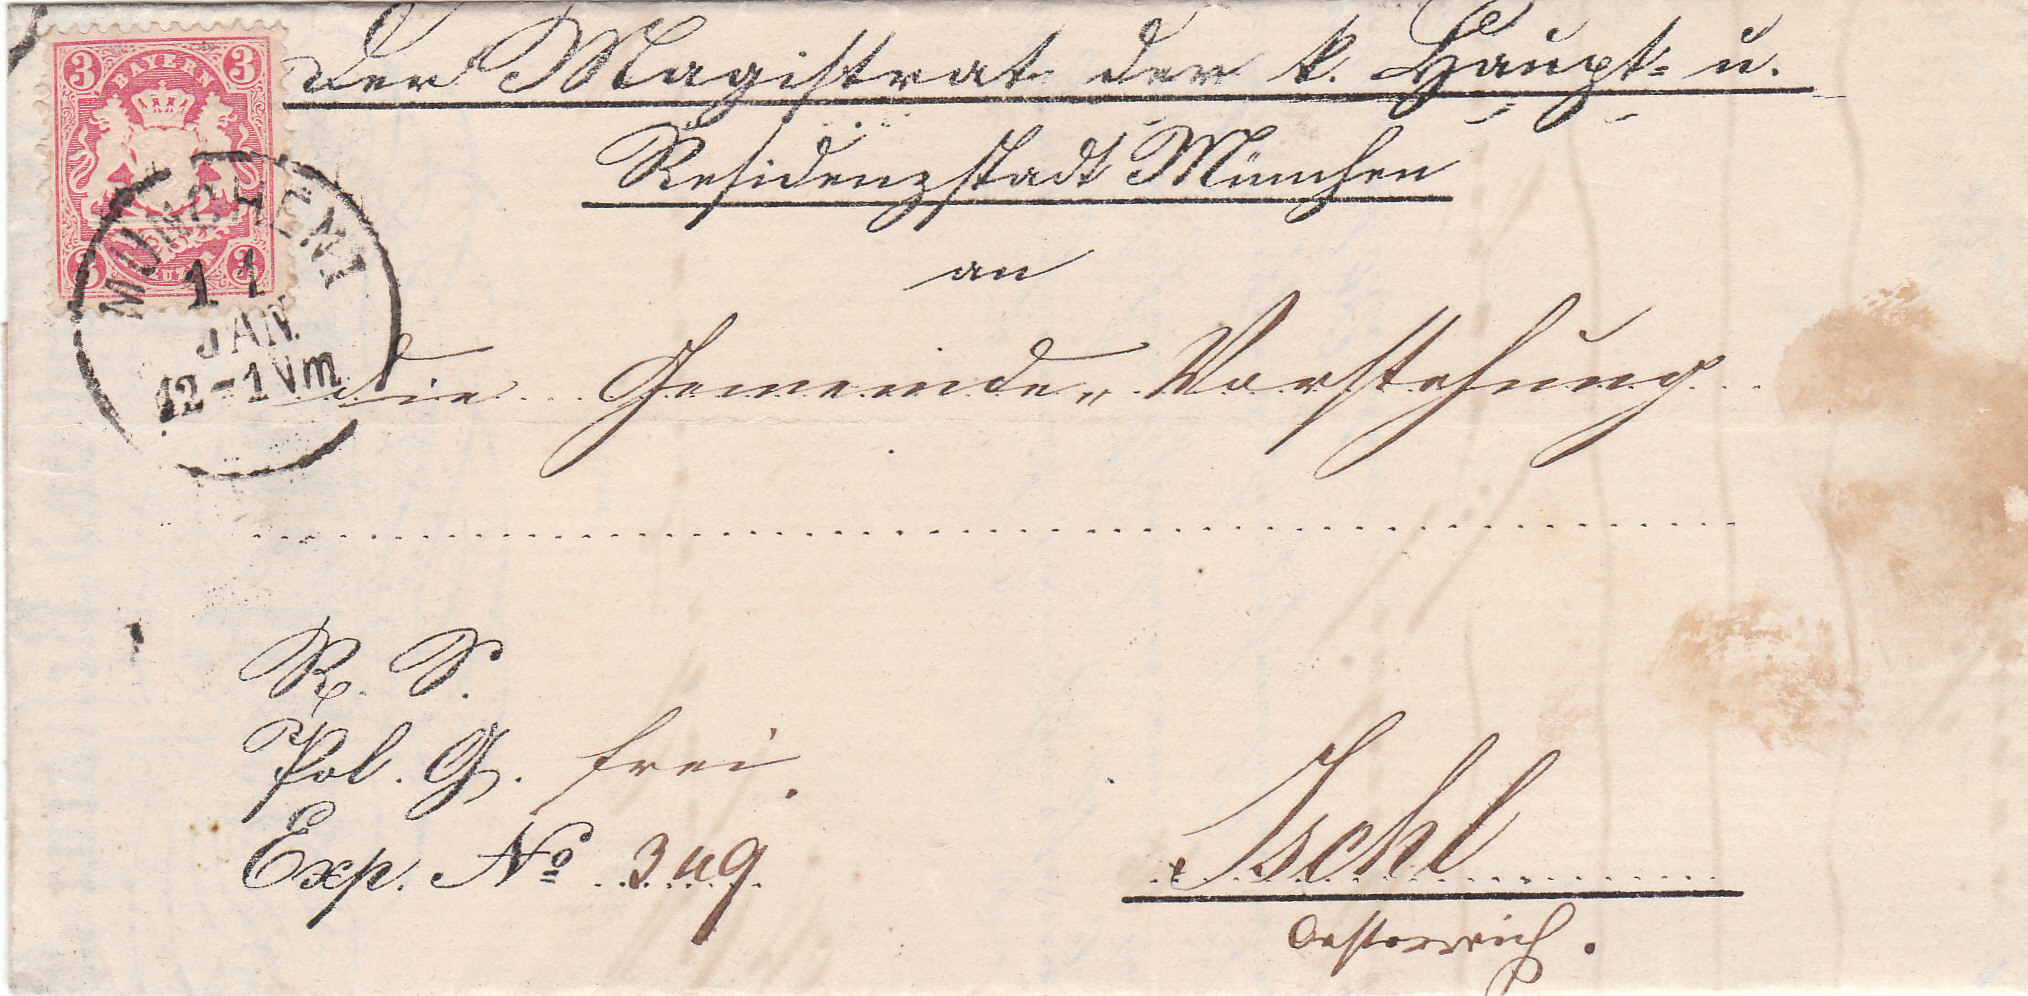 3 BAYERN 3
3 3
MÜNCHEN I
11
JAN.
12-1 Nm
Der Magistrat der k. Haupt= u.
Residenzstadt München
an
die Gemeinde-Vorstehung
R. S.
Pol. G. frei.
Exp. No 349
Ischl
Oesterreich.